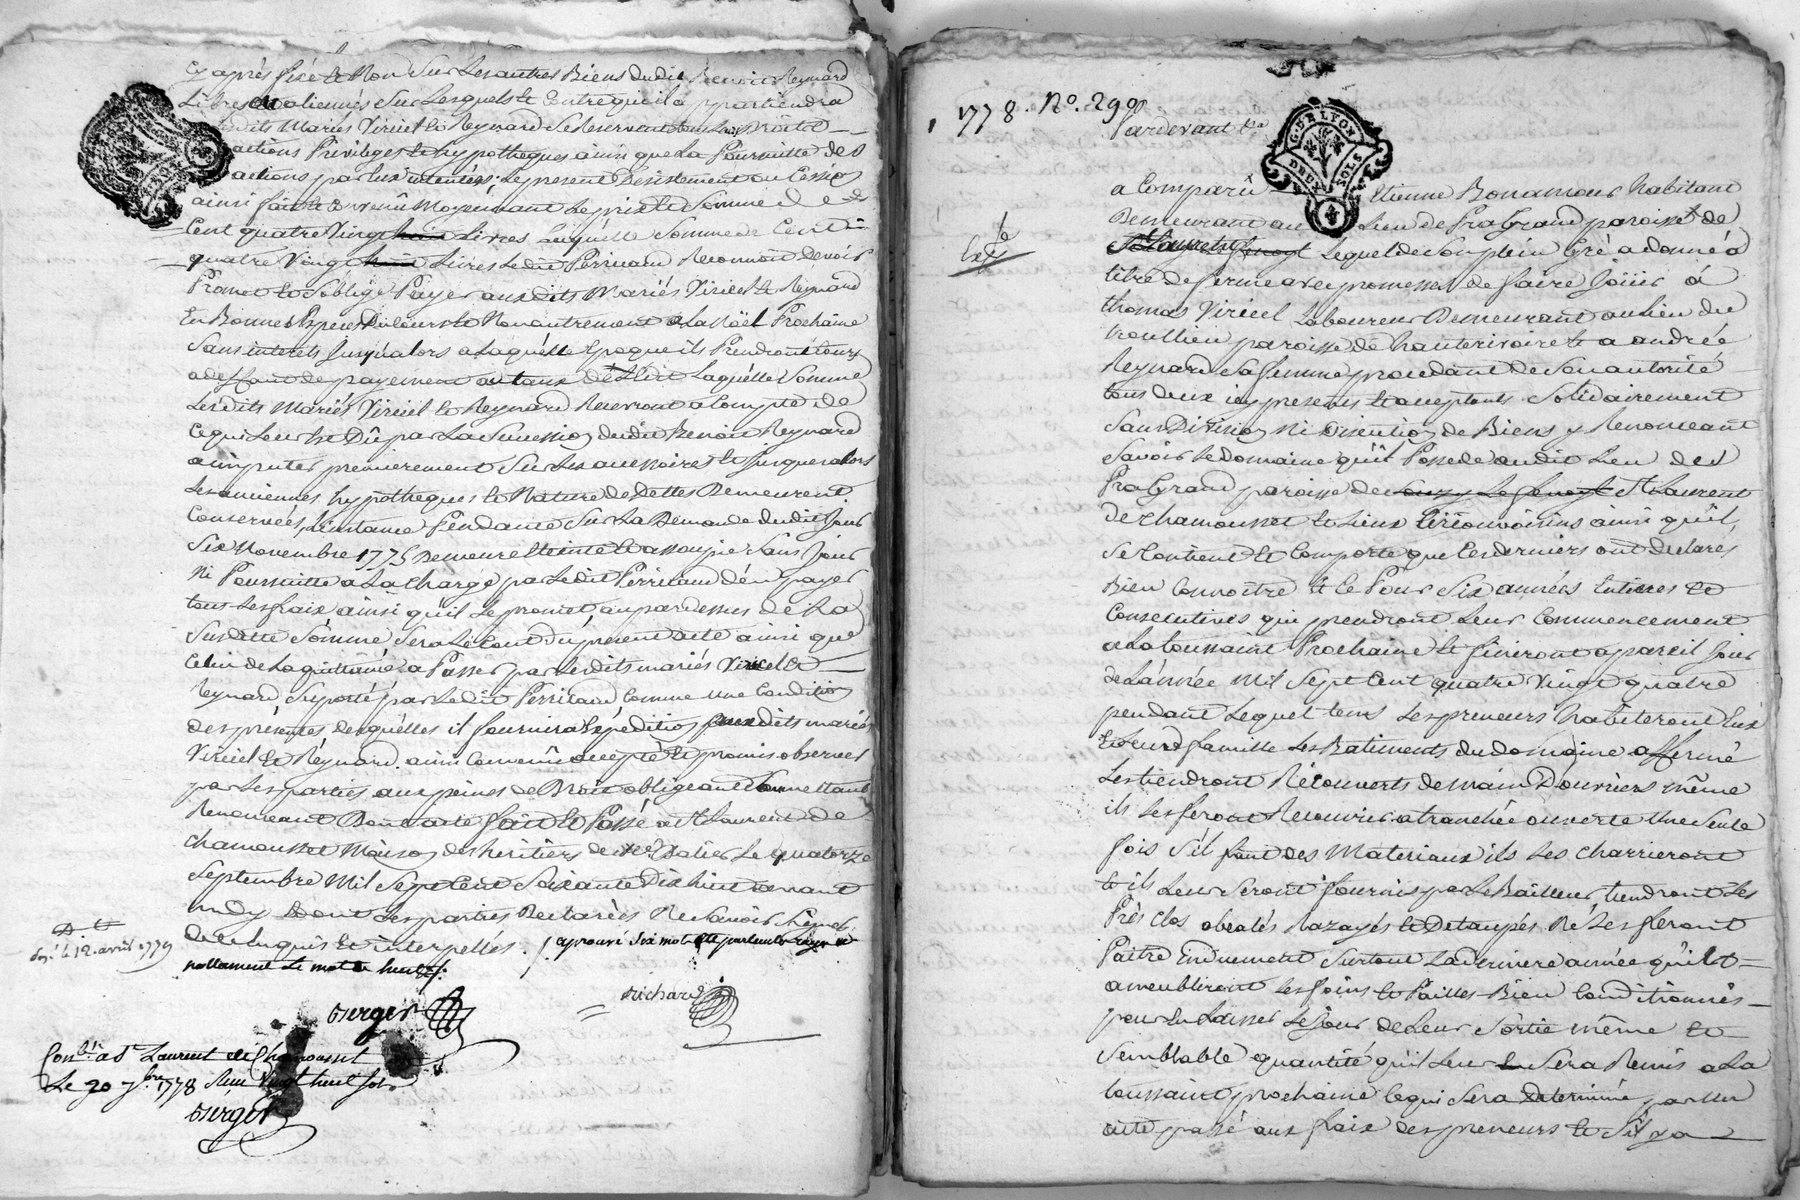 Cy après fixé et Non Sur Les autres Biens dudit Benoit Reynard
Libres et aliennés Sur Lesquels et Contre qui il appartiendra
Lesdits Mariés Viricel et Reynard Se Reservent tous Leurs Droits
actions Privileges et hypotheques ainsi que La Poursuitte des
actions par Eux intentées, Le present Desistement ou Cession
ainsi fait et Convenû Moyennant Le prix et Somme de
Cent quatre Vingt Livres Laquelle Somme de Cent
quatre Vingt Livres Ledit Perricaud Reconnoit Devoir
Promet et S'oblige Payer auxdits Mariés Viricel et Reynard
En Bonnes Espèces Du Cours et Non autrement a La Noël Prochaine
Sans interets Jusqu'alors a Laquelle Epoque ils Prendront cours
a deffaut de payement au taux de L'Edit Laquelle Somme
Lesdits Mariés Viricel et Reynard Recevront a Compte de
Ce qui Leur Est Dû par La Succession dudit Benoit Reynard
a imputer premierement Sur Les accessoires et Jusqu'alors
Les anciennes hypotheques et Nature de Dettes Demeurent
Conservées, L'instance Pendante Sur La Demande dudit Jour
Six Novembre 1775 Demeure Eteinte et assoupie Sans Jour
Ni Poursuitte a La Charge par Ledit Perricaud d'en payer
tous Les fraix ainsi qu'il Le promet, au par dessus de La
Susditte Somme Sera Le Cout du present acte ainsi que
Celui de La quittance a Passer par Lesdits mariés Viricel et
Reynard Suporté par Ledit Perricaud Comme une Condition
des présentes desquelles il fournira Expédition auxdits mariés
Viricel et Reynard. ainsi Convenû accepté et promis observer
par Les parties aux peines de Droit obligeant Soumettant
Renonceant Dont acte fait et Passé a St Laurent de
Chamousset Maison des heritiers de Me Dalier Le quatorze
Septembre Mil Sept Cent Soixante Dix huit avant
midy Dont Les parties Declarées Ne Savoir Signer
De ce Enquis et interpellés. / aprouvé six mots et particulier rayé et
nottament Le mot huit /.
Dt
Exp.é le 12. avril 1779
Berger
Richard
Con.lé a St Laurent de Chamousset
Le 20 7bre 1778 Reçu Vingt huit sols
Berger
1778. No. 290
Pardevant Le
G. DE LYON
DEUX SOLS
a Comparû Etienne Bonamour habitant
Demeurant au Lieu de Pragrand paroisse de
Lequel de Son plein Gré a donné á
titre de ferme avec promesse de faire Joüir á
thomas Viricel Laboureur Demeurant au Lieu du
Vroullien paroisse de hauterivoire et a andrée
Reynard Sa femme procedant de Son autorité
tous deux icy presents et acceptants Solidairement
Sans Division ni Discution de Biens y Renonceant
Savoir Le Domaine qu'il Possede audit Lieu de
Pragrand paroisse de St Laurent
de Chamousset et Lieux Circonvoisins ainsi qu'il
Se Contient et Comporte que Ces derniers ont declarés
Bien Connoître et ce Pour Six années Entieres et
Consecutives qui prendront Leur Commencement
a La toussaint Prochaine et finiront a pareil Jour
de L'année mil Sept Cent quatre Vingt quatre
pendant Lequel tems Les preneurs habiteront Eux
et Leur famille Les Batiments du domaine affermé
Les tiendront Récouverts de main D'ouvriers même
ils Les feront Recouvrir a tranchée ouverte Une Seule
fois S'il faut des Materiaux ils Les Charrieront
et ils Leur Seront fournis par Le Bailleur, tiendront Les
Prés Clos obealés Razayés et Detaupés Ne Les feront
Paitre Enduement Surtout La derniere année qu'ils
ameubliront Les foins et Pailles Bien Conditionnés
pour En Laisser Le Jour de Leur Sortie même et
Semblable quantité qu'il Leur En Sera Remis a La
toussaint prochaine Ce qui Sera determiné par Un
acte passé aux fraix des preneurs et S'il y a